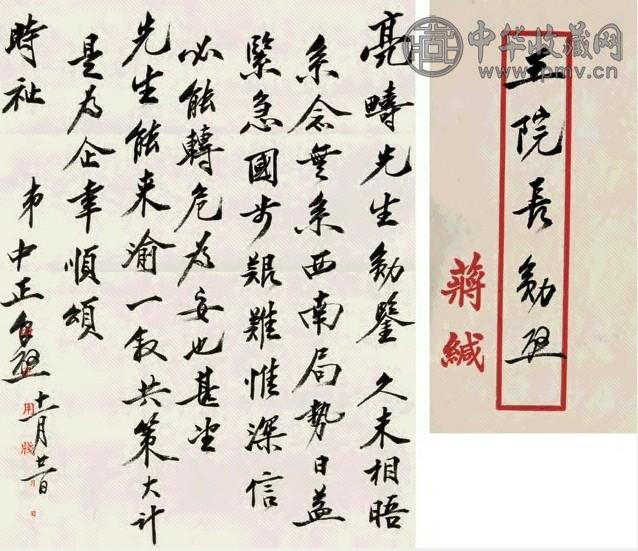 亮疇先生勛鑒 久未相晤
系念無系西南局勢日益
緊急國步艱難惟深信
必能轉危為安也甚望
先生能来渝一叙共策大計
是為企幸順頌
時祉
弟中正
十一月廿一日
用牋
月 日
王院長勛啟
蔣緘
中华收藏网
www.pmv.cn